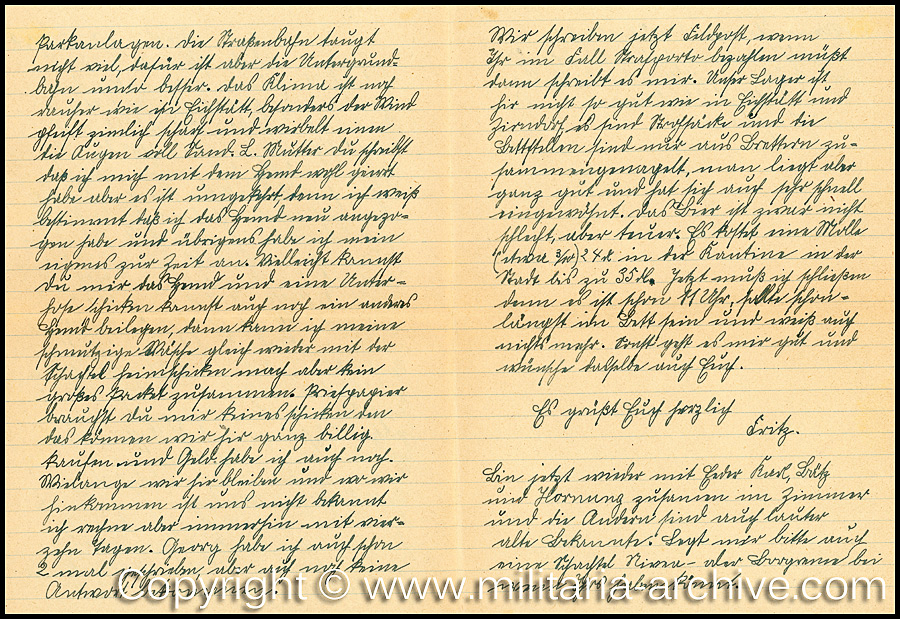 Parkanlagen. Die Straßenbahn taugt
nicht viel, dafür ist aber die Untergrund-
bahn umso besser. Das Klima ist noch
rauher wie in Eichstätt, besonders der Wind
pfeift ziemlich scharf und wirbelt einem
die Augen voll Sand. L. Mutter Du schreibst
daß ich mich mit dem Hemd wohl geirrt
habe aber es ist umgekehrt, denn ich weiß
bestimmt daß ich das Hemd neu angezo-
gen habe und übrigens habe ich mein
eigenes zur Zeit an. Vielleicht kannst
Du mir das Hemd und eine Unter-
hose schicken kannst auch noch ein anderes
Hemd beilegen, dann kann ich meine
schmutzige Wäsche gleich wieder mit der
Schachtel heimschicken mach aber kein
großes Packet zusammen. Briefpapier
brauchst Du mir keines schicken den
das können wir hir ganz billig
kaufen und Geld habe ich auch noch.
Wielange wir hir bleiben und wo wir
hinkommen ist uns nicht bekannt
ich rechne aber immerhin mit vier-
zehn Tagen. Georg habe ich auch schon
2 mal geschrieben aber auch noch keine
Antwort bekommen.
Wir schreiben jetzt Feldpost, wenn
Ihr im Fall Strafporto bezahlen müßt
dann schreibt es mir. Unser Lager ist
hir nicht so gut wie in Eichstätt und
Zirndorf es sind Strohsäcke und die
Bettstellen sind nur aus Brettern zu-
sammengenagelt, man liegt aber
ganz gut und hat sich auch sehr schnell
eingewöhnt. Das Bier ist zwar nicht
schlecht, aber teuer. Es kostet eine Molle
in der Kantine in der
Stadt bis zu 35 d. Jetzt muß ich schließen
denn es ist schon 11 Uhr, sollte schon
längst im Bett sein und weiß auch
nichts mehr. Sonst geht es mir gut und
wünsche dasselbe auch Euch.
Es grüßt Euch herzlich
Fritz.
Bin jetzt wieder mit Eder Karl, Bätz
und Hornung zusamen im Zimmer
und die Andern sind auch lauter
alte Bekannte. Legt mir bitte auch
eine Schachtel Nivea- oder Borcreme bei
Copyright © www.militaria-archive.com